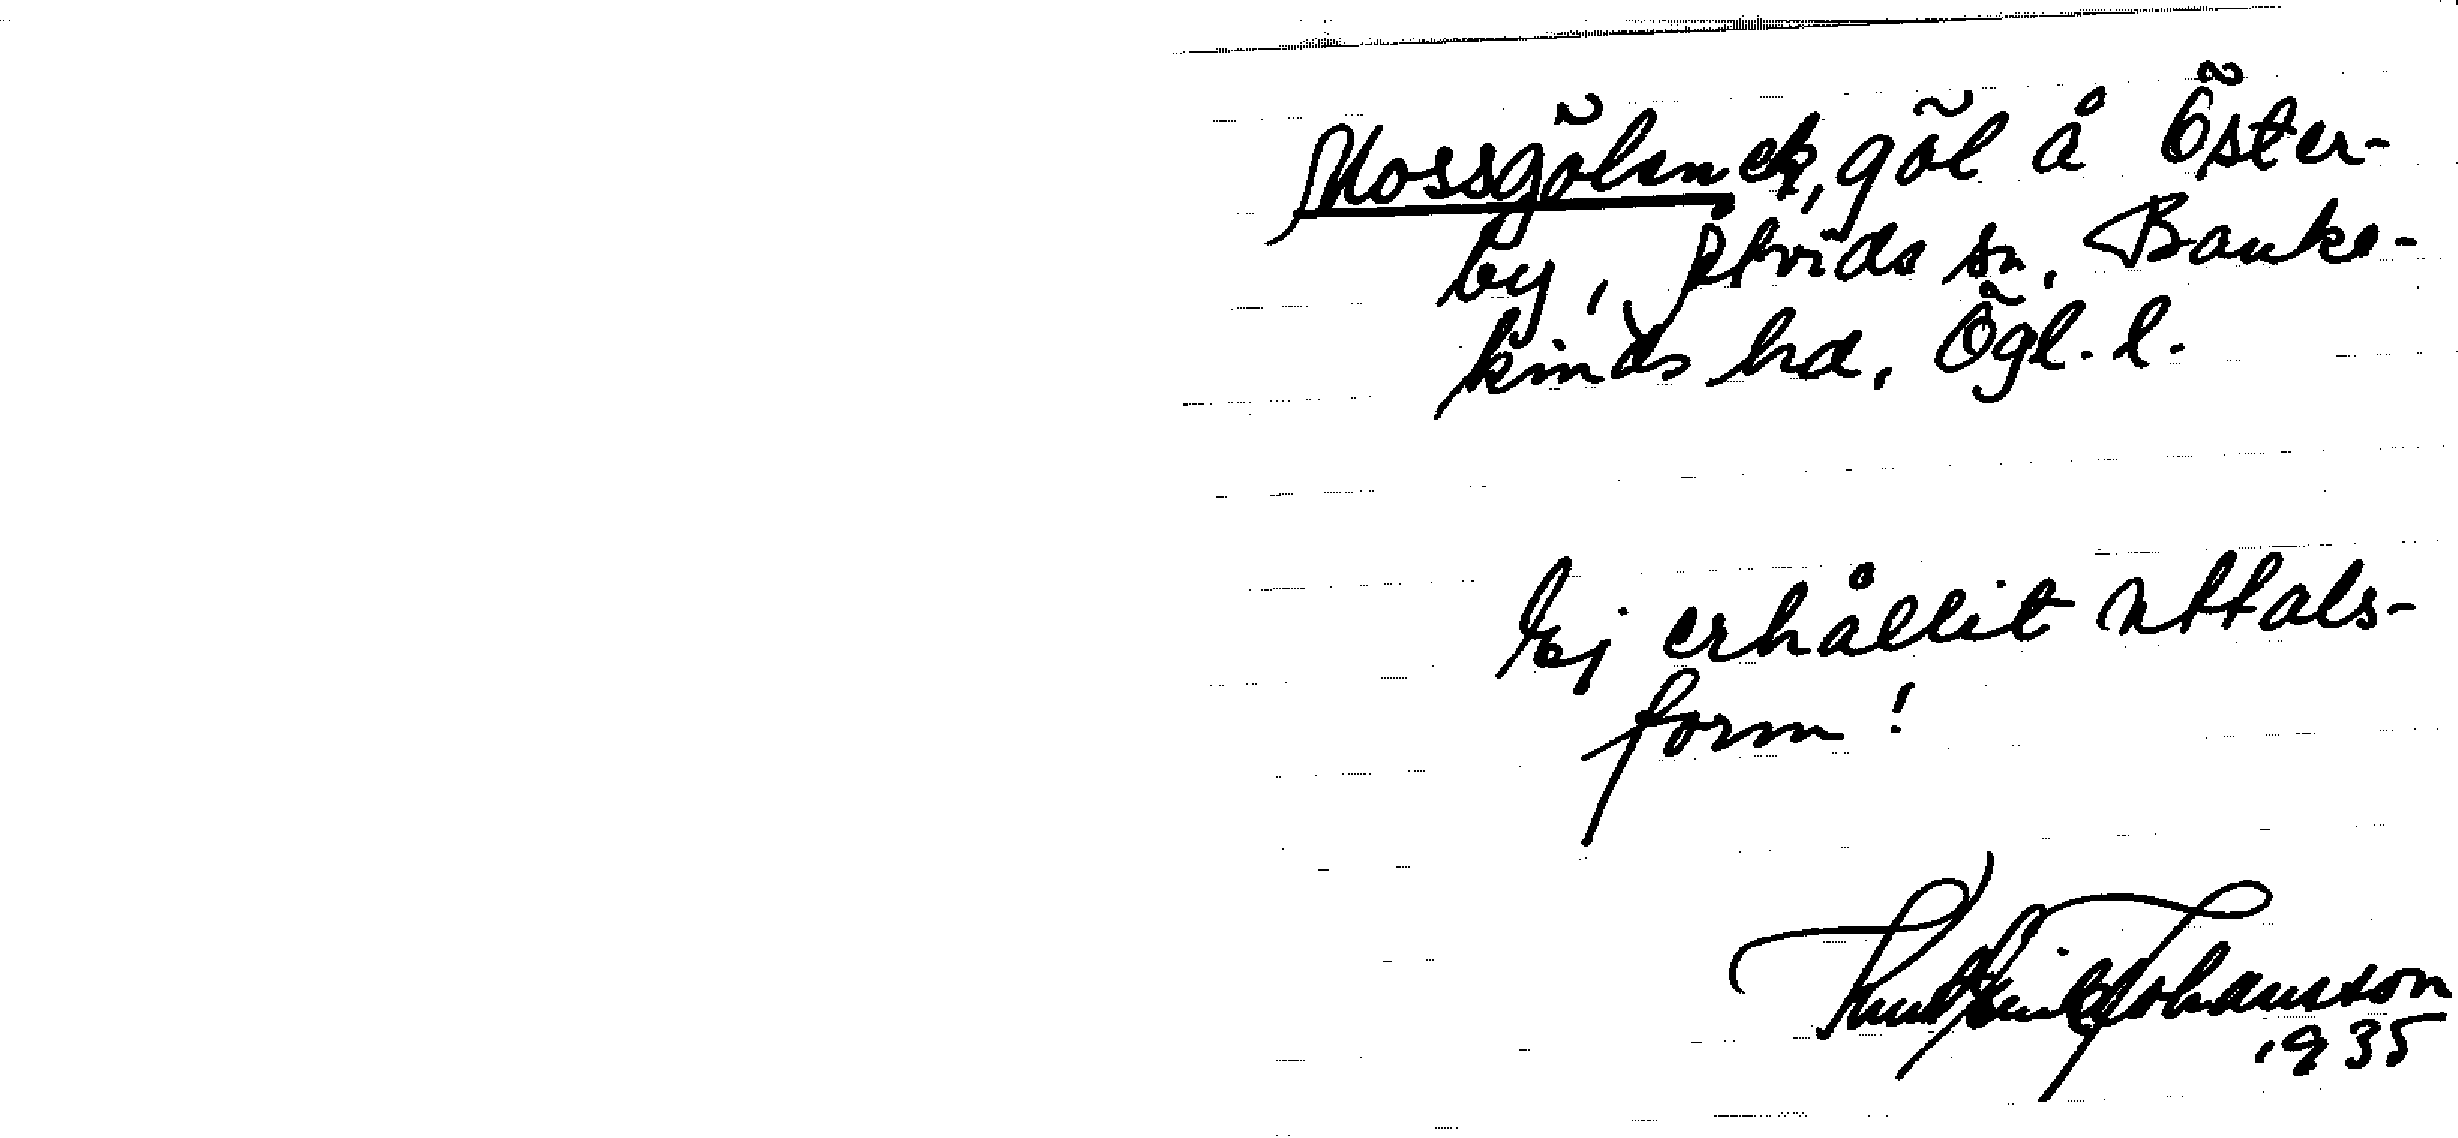 Mossgölen ek, göl å Öster-
by, Åtvids sn, Banke-
kinds hd, Ögl. l.
Ej erhållit uttals-
form!
Knut Emil Johansson
1935